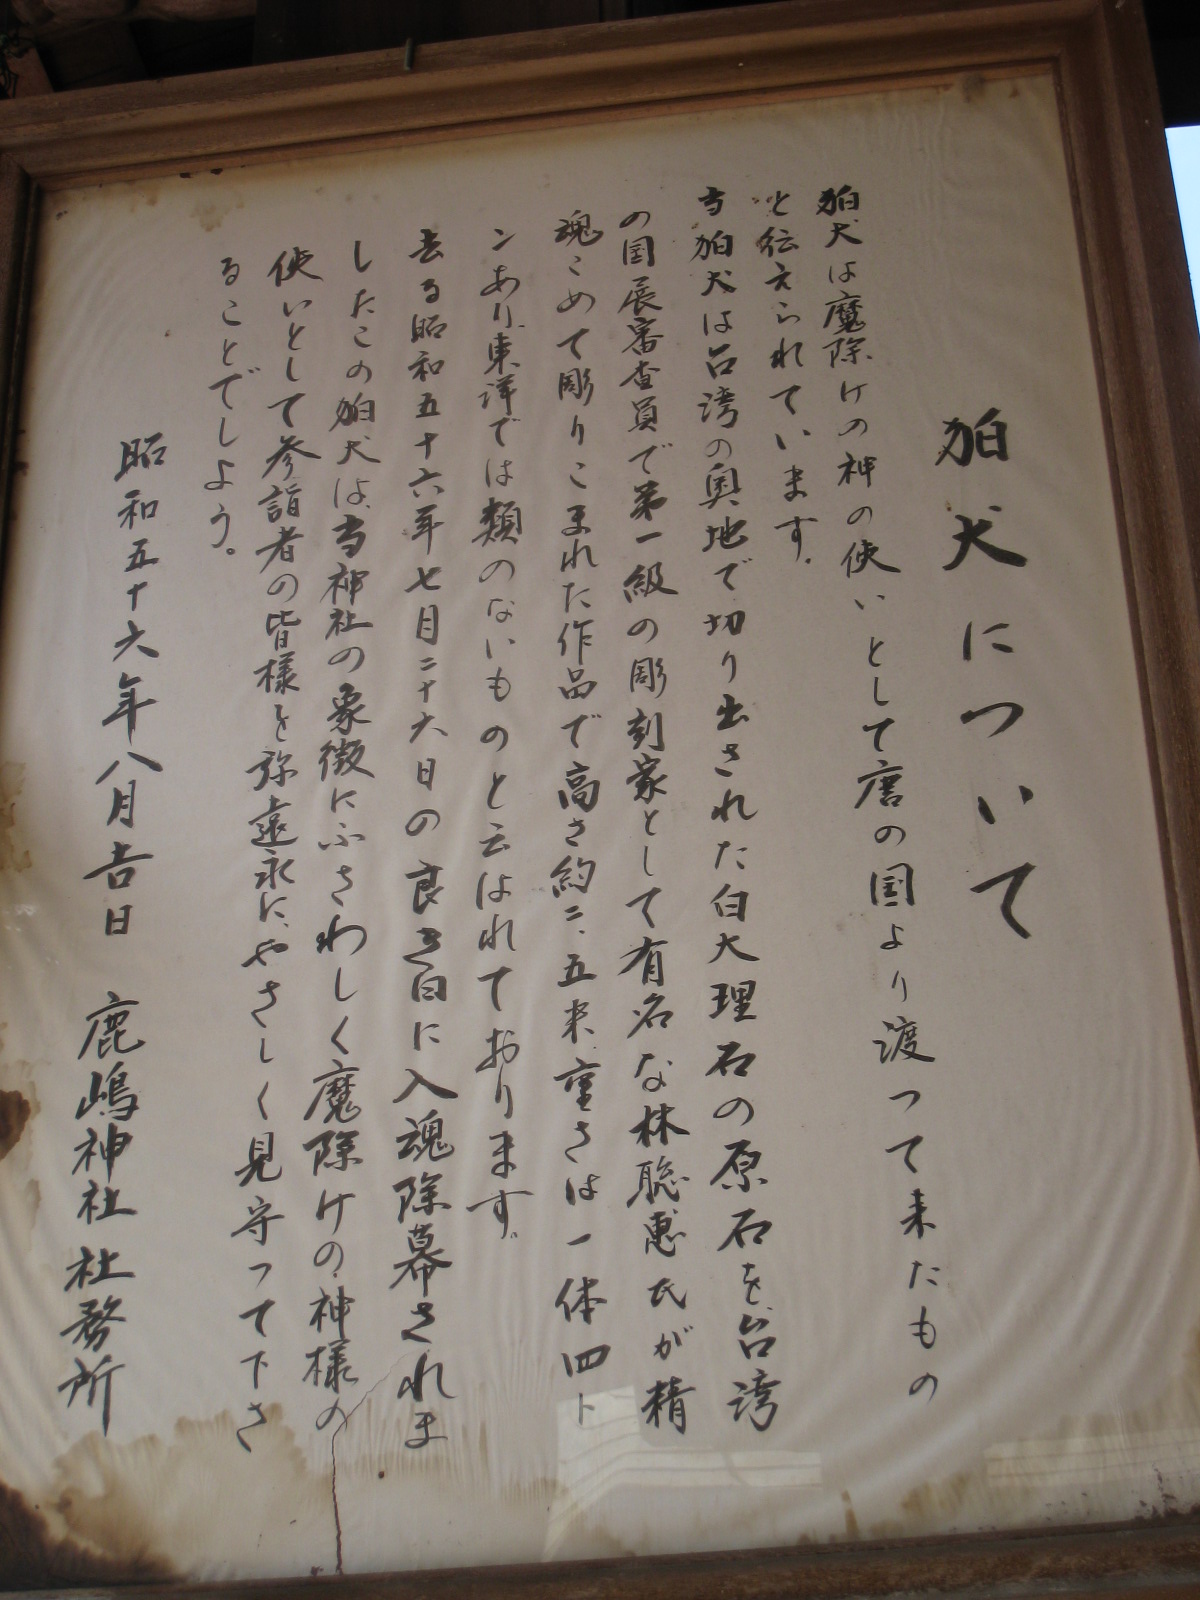 狛犬について
狛犬は魔除けの神の使いとして唐の国より渡って来たもの
と伝えられています。
当狛犬は台湾の奥地で切り出された白大理石の原石を、台湾
の国展審査員で第一級の彫刻家として有名な林聡惠氏が精
魂こめて彫りこまれた作品で高さ約二、五米、重さは一体四ト
ンあり、東洋では類のないものと云はれております。
去る昭和五十六年七月二十六日の良き日に入魂除幕されま
したこの狛犬は、当神社の象徴にふさわしく魔除けの神様の
使いとして参詣者の皆様を弥遠永に、やさしく見守って下さ
ることでしよう。
昭和五十六年八月吉日 鹿嶋神社社務所